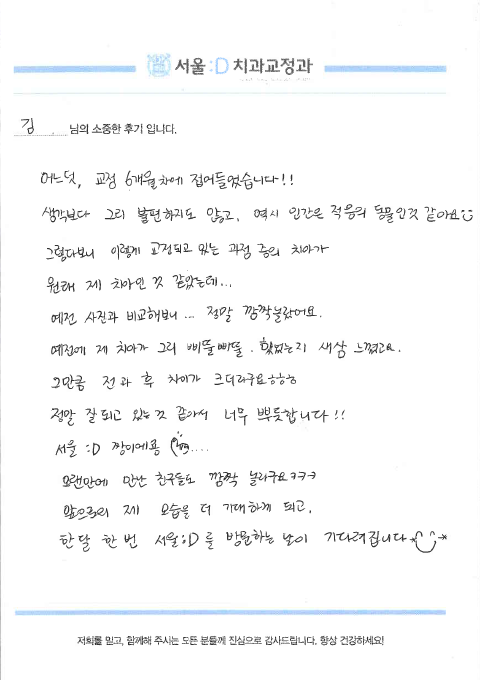 서울:D 치과교정과
김 님의 소중한 후기 입니다.
어느덧, 교정 6개월차에 접어들었습니다!!
생각보다 그리 불편하지도 않고, 역시 인간은 적응의 동물인것 같아요
그렇다보니 이렇게 교정되고 있는 과정 중의 치아가
원래 제 치아인 것 같았는데...
예전 사진과 비교해보니... 정말 깜짝놀랐어요.
예전에 제 치아가 그리 삐뚤빼뚤. 했었는지 새삼 느꼈고요.
그만큼 전과 후 차이가 크더라구요ㅎㅎㅎ
정말 잘 되고 있는 것 같아서 너무 뿌듯합니다!!
서울:D 짱이에용 ....
오랜만에 만난 친구들도 깜짝 놀라구요ㅋㅋㅋ
앞으로의 제 모습을 더 기대하게 되고,
한 달 한 번 서울:D를 방문하는 날이 기다려집니다
저희를 믿고, 함께해 주시는 모든 분들께 진심으로 감사드립니다. 항상 건강하세요!